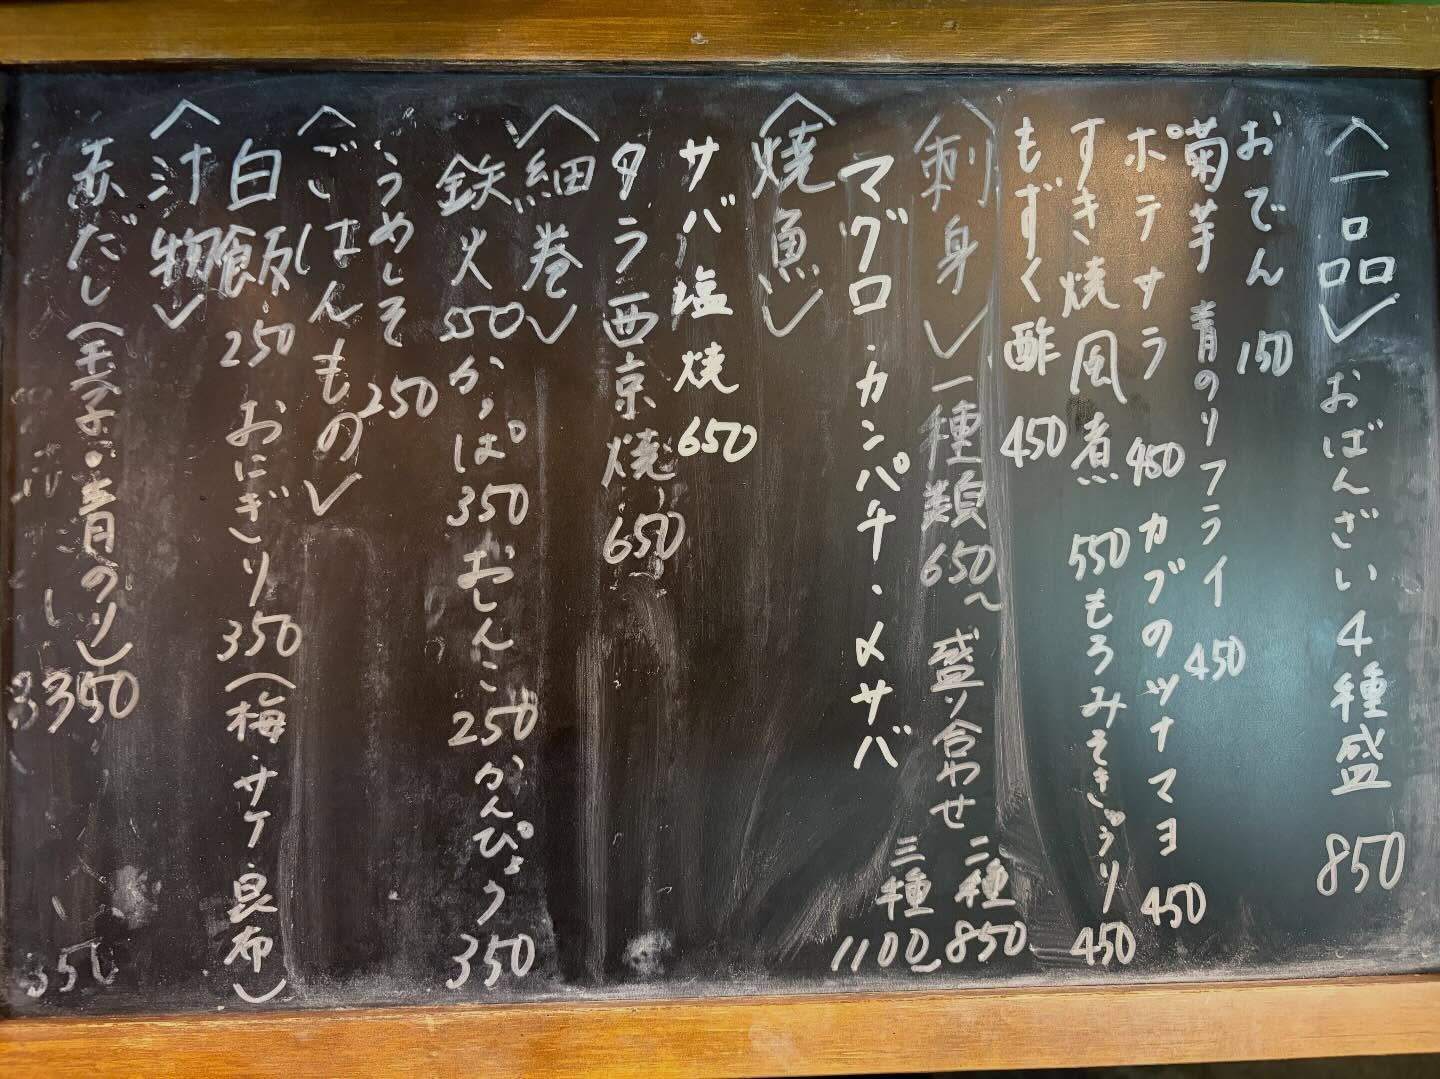 〈一品〉 おばんざい4種盛 850
おでん 150
菊芋 青のりフライ 450
ポテサラ 450 カブのツナマヨ 450
すき焼風煮 550 もろみそきゅうり 450
もずく酢 450
〈刺身〉 一種類 650〜 盛り合わせ 二種 850
三種 1100〜
マグロ・カンパチ・〆サバ
〈焼魚〉
サバ塩焼 650
タラ西京焼 650
〈細巻〉
鉄火 550 かっぱ 350 おしんこ 250 かんぴょう 350
うめしそ 250
〈ごはんもの〉
白飯 250 おにぎり 350 (梅・サケ・昆布)
〈汁物〉
赤だし(玉子・青のり) 350
350